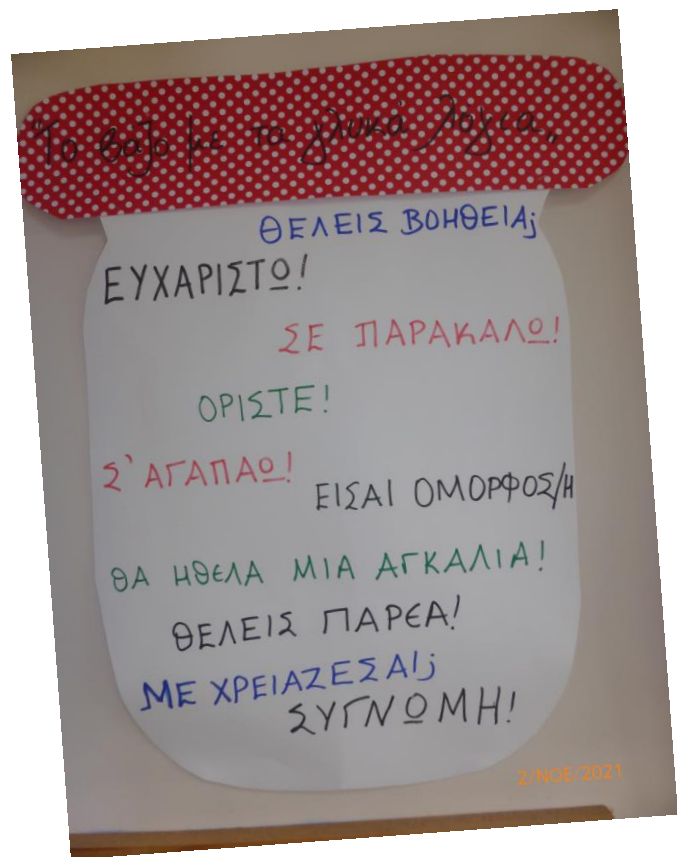 "Το βάζο με τα γλυκά λόγια„
ΘΕΛΕΙΣ ΒΟΗΘΕΙΑ;
ΕΥΧΑΡΙΣΤΩ!
ΣΕ ΠΑΡΑΚΑΛΩ!
ΟΡΙΣΤΕ!
Σ'ΑΓΑΠΑΩ!
ΕΙΣΑΙ ΟΜΟΡΦΟΣ/Η
ΘΑ ΗΘΕΛΑ ΜΙΑ ΑΓΚΑΛΙΑ!
ΘΕΛΕΙΣ ΠΑΡΕΑ!
ΜΕ ΧΡΕΙΑΖΕΣΑΙ;
ΣΥΓΝΩΜΗ!
2/ΝΟΕ/2021